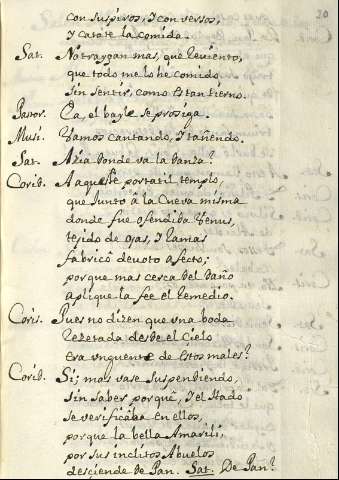 20
con suspiros, y con versos,
y catate la comida.
Sat. No traygan mas, que rebiento,
que todo me lo he comido
sin sentir, como es tan tierno.
Pastor. Ea, el bayle se prosiga.
Musi. Vamos cantando, y tañendo.
Sat. Azia donde va la danza?
Corib. A aqueste portatil templo,
que junto à la Cueva misma
donde fue ofendida Venus,
tejido de ojas, y ramas
fabricó devoto afecto;
porque mas cerca del daño
aplique la fee el remedio.
Coris. Pues no dizen que una boda
rezetada desde el Cielo
era unguente de estos males?
Corib. Si; mas vase suspendiendo,
sin saber porque, y el Hado
se verificaba en ellos,
porque la bella Amarili,
por sus inclitos Abuelos
desciende de Pan. Sat. De Pan?